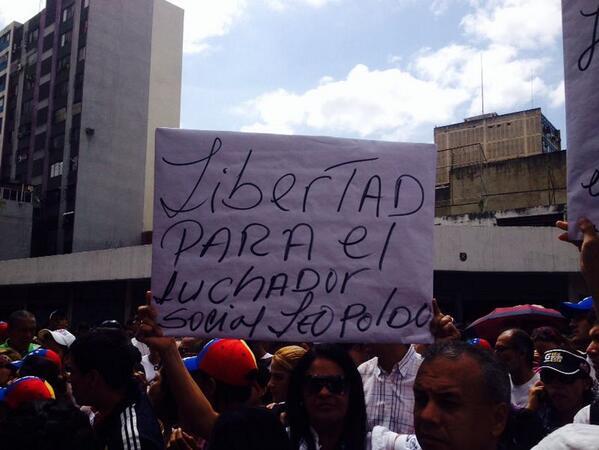 LiberTAD
PARA el
LuchADor
social LEOPOLDO